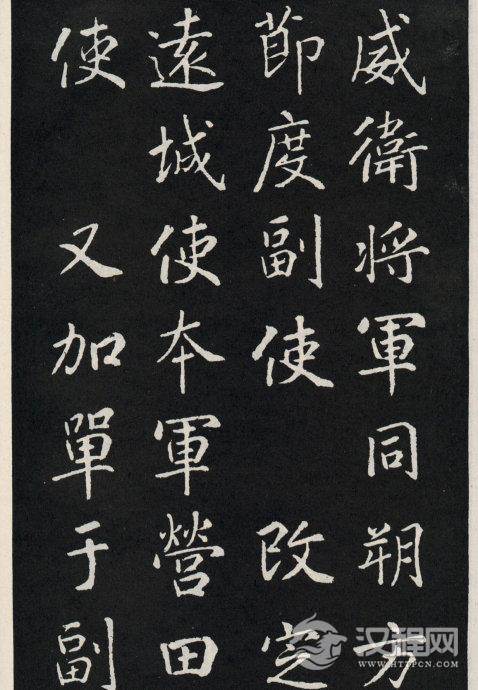 威衛將軍同朔方
節度副使 改定
遠城使本軍營田
使 又加單于副
汉程网
WWW.HTTPCN.COM